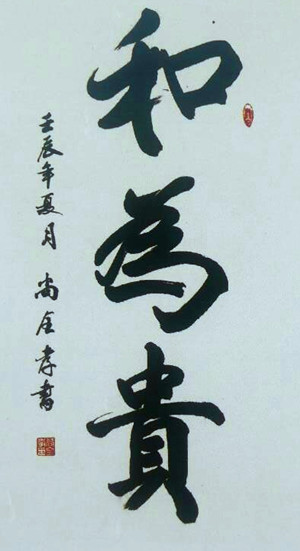 和為貴
壬辰年夏月 尚全孝書